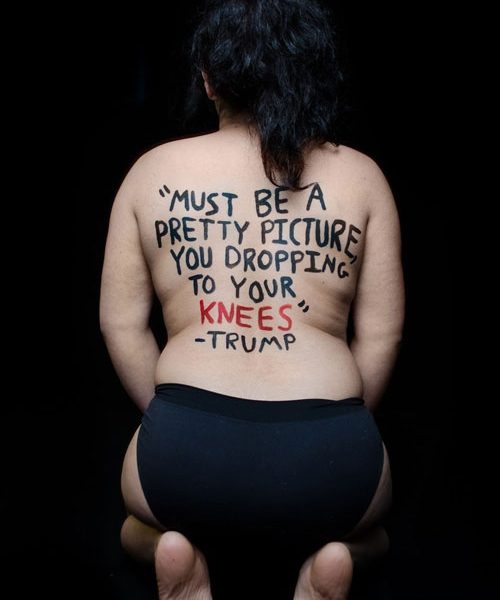 “MUST BE A
PRETTY PICTURE,
YOU DROPPING
TO YOUR
KNEES”
-TRUMP